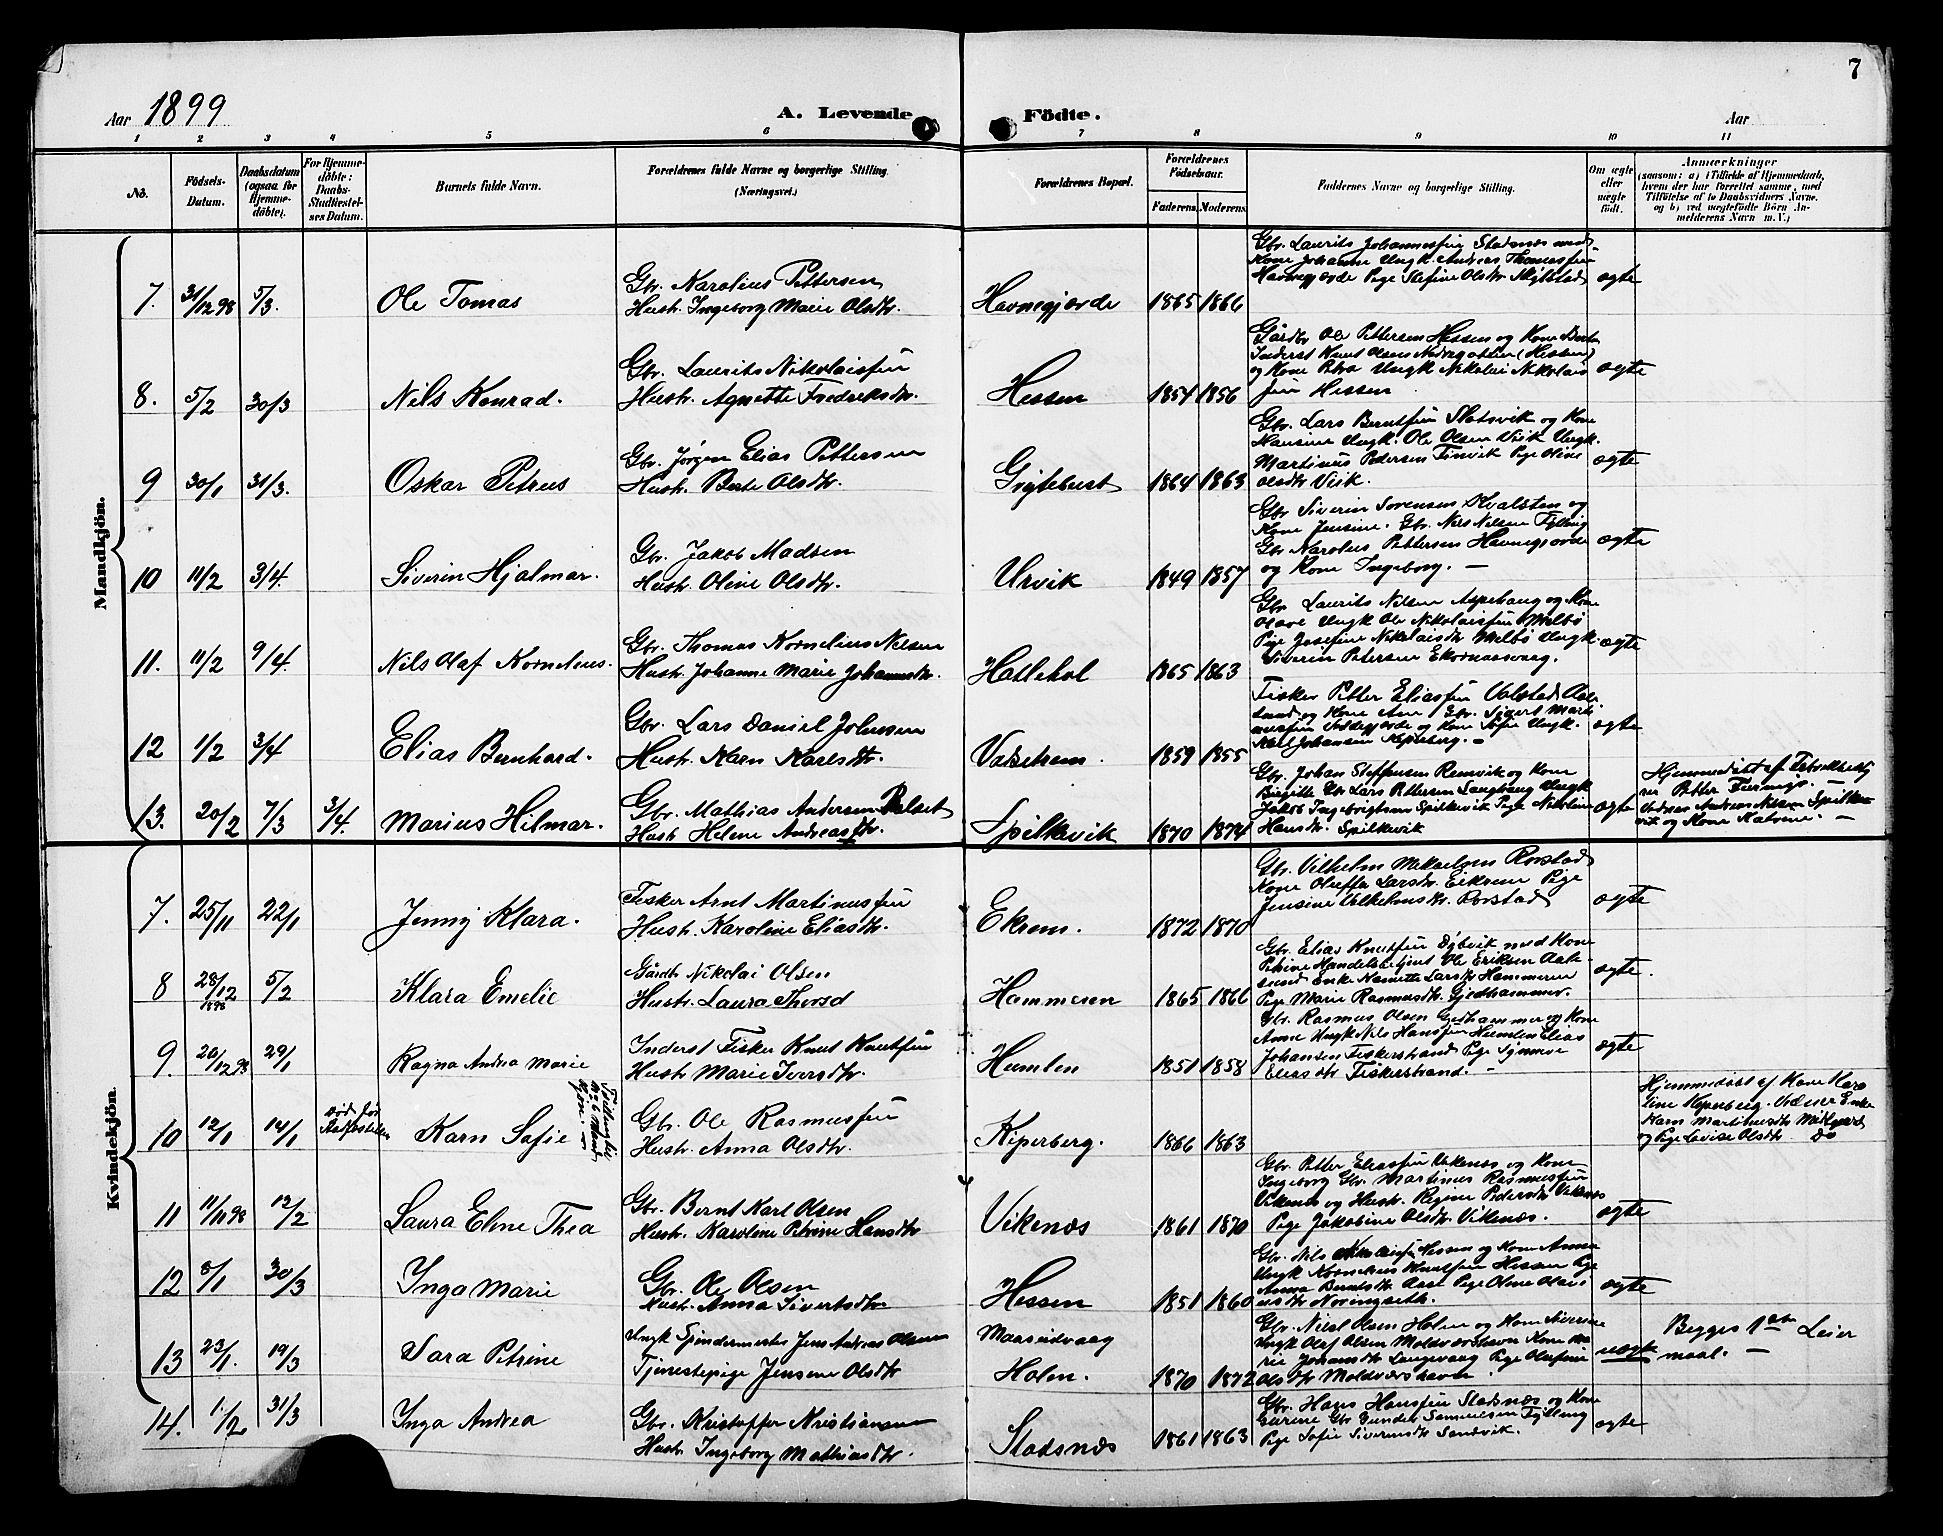 7
Aar 1899
A. Levende Födte.
Aar
1 2 3 4 5 6 7 8 9 10 11
No.
Födsels-Datum.
Daabsdatum (ogsaa for Hjemmedöbte).
For Hjemmedöbte: Daabs-Stadfæstelses Datum.
Barnets fulde Navn.
Forældrenes fulde Navne og borgerlige Stilling. (Næringsvei.)
Forældrenes Bopæl.
Forældrenes Födselsaar.
Faderens. Moderens.
Faddernes Navne og borgerlige Stilling.
Om ægte eller uægte födt.
Anmærkninger
(saasom: a) i Tilfælde af Hjemmedaab, hvem der har forrettet samme, med Tilföielse af to Daabsvidners Navne, og b) ved uægtefödte Börn Anmelderens Navn m. V.)
Mandkjön.
7. 31/12 98 5/3. Ole Tomas
Gbr. Karolius Pettersen
Hustr. Ingeborg Marie Olsdtr.
Havnegjærde 1865 1866
Gbr. Laurits Johannesen Stadsnæs med
Kone Johanne Ungk. Andreas Thomassen
Havnegjærde Pige Stefine Olsdtr.
ægte
8. 5/2 30/3 Nils Konrad.
Gbr. Laurits Nikolaisen
Hustr. Agnette Fredriksdtr.
Hessen 1854 1856
Gårdbr Ole Pettersen Hessen og Kone
Inderst Knut Olsen (Hessen)
og Kone Petra Ungk Nikolai Nikolai
sen Hessen
ægte
9 30/1 31/3. Oskar Petrus
Gbr. Jørgen Elias Pettersen
Hustr. Berte Olsdtr.
1864 1863
Gbr. Lars Berntsen Slotsvik og Kone
Hansine Ungk. Ole Olsen Vik Ungk.
Martinus Pedersen Pige Oline
Olsdtr Vik.
ægte
10 11/2 3/4. Siverin Hjalmar.
Gbr. Jakob Madsen
Hustr. Oline Olsdtr.
Urvik 1849 1857
Gbr Siverin Sørensen Kvalsten og
Kone Jensine. Gbr. Nils Nilsen Fylling
Gbr Karolus Pettersen Havnegjærde
og Kone Ingeborg. —
ægte
11. 11/2 9/4. Nils Olaf Kornelius.
Gbr. Thomas Kornelius Nilsen
Hustr. Johanne Marie Johannesdtr.
Hatlehol 1865 1863
Gbr Laurits Nilsen Aspehaug og Kone
Olave Ungk Ole Nikolaisen Melbø
Pige Josefine Nikolaisdtr Melbø Ungk.
Siverin Petersen Ekornaasvaag.
ægte
12 1/2 3/4 Elias Bernhard.
Gbr. Lars Daniel Johnsen
Hustr. Karn Karlsdtr.
1859 1855
Fisker Petter Eliassen Aale
sund og Kone Gbr. Sivert Marti
nussen og Kone Sofie Ungk.
Karl Johansen Kiperberg. —
ægte
13. 20/2 7/3 3/4. Marius Hilmar.
Gbr. Mathias Andersen
Hustr Helene Andreasdtr.
Spilkevik 1870 1874
Gbr. Johan Steffensen Remvik og Kone
Birgitte Gbr Lars Pettersen Langhaug Ungk
Jakob Ingebrigtsen Spilkevik Pige Nikoline
Hansdtr. Spilkevik
ægte
Hjemmedøbt af
Petter
Andreas Nilsen Spilke
vik og Kone Katrine. —
Kvindekjön.
7. 25/11 22/1 Jenny Klara.
Fisker Arnt Martinussen
Hustr. Karoline Eliasdtr.
Ekrem. 1872 1870
Gbr. Vilhelm Mikaelsen Rørstad
Kone Oluffa Larsdtr. Pige
Jensine Vilhelmsdtr. Rørstad
ægte
8 28/12 1898 5/2 Klara Emelie
Gårdb Nikolai Olsen
Hustr. Laura Thorsd
Hammeren 1865 1866
Gbr. Elias Knutsen Dybvik med Kone
Petrine Handelsbetjent Ole Eriksen Aale
sund Enke Larsdtr Hammeren
Pige Marie Rasmusdtr. Gjedhammer.
ægte.
9. 20/12 98 29/1 Ragna Andrea Marie
Inderst Fisker Knut Knutsen
Hustr Marie Iversdtr.
Humlen 1851 1858
Gbr. Rasmus Olsen Gjedhammer og Kone
Anne Ungk Nils Hansen Humlen Elias
Johansen Fiskerstrand Pige Synneve
Eliasdtr Fiskerstrand. —
ægte
10 12/1 14/1 Død før Stadfæstelsen Karn Sofie
Tvilling til No 6 Mandkjøn. —
Gbr. Ole Rasmussen
Hustr. Anna Olsdtr.
Kiperberg. 1866 1863
Hjemmedøbt af Kone Karo
line Kiperberg. Vidner Enke
Karn Martinusdtr
og Pige Lovise Olsdtr. Do
11 11/11 98 12/2 Laura Eline Thea
Gbr. Bernt Karl Olsen
Hustr. Karoline Petrine Hansdtr
Vikenæs 1861 1870
Gbr. Petter Eliassen Vikenæs og Kone
Ingeborg Gbr. Martinus Rasmussen
Vikenæs og Hustr. Regine Pedersdtr Vikenæs
Pige Jakobine Olsdtr. Vikenæs.
ægte
12 8/1 30/3 Inga Marie
Gbr. Ole Olsen
Hustr. Anna Sivertsdtr.
Hessen 1851 1860
Gbr. Nils Hessen og Kone Anna
Ungk Kornelius Knutsen Hessen Pige
Anna Berntsdtr Aase Pige Oline Olaus
dtr Nøringseth.
ægte
13 23/1. 19/3 Sara Petrine
Ungk Spindermester Jens Andreas Olsen
Tjenestepige Jensine Olsdtr
Maaseidvaag
Holen. 1870 1872
Gbr. Niels Olsen Holen og Kone Siverine
Ungk Olaf Olsen Moldværshavn Kone Ma
rie Johansdtr Langevaag Pige Olufine
Olsdtr Moldværshavn
uægte
Begges 1ste Leier
maal. —
14. 1/2 31/3 Inga Andrea
Gbr. Kristoffer Kristiansen
Hustr Ingeborg Mathiasdtr.
Stadsnæs 1861 1863
Gbr. Hans Hansen Stadsnæs og Kone
Gurine Gbr Gunder Samuelsen Fylling
Pige Sofie Siverinsdtr Sandvik.
ægte